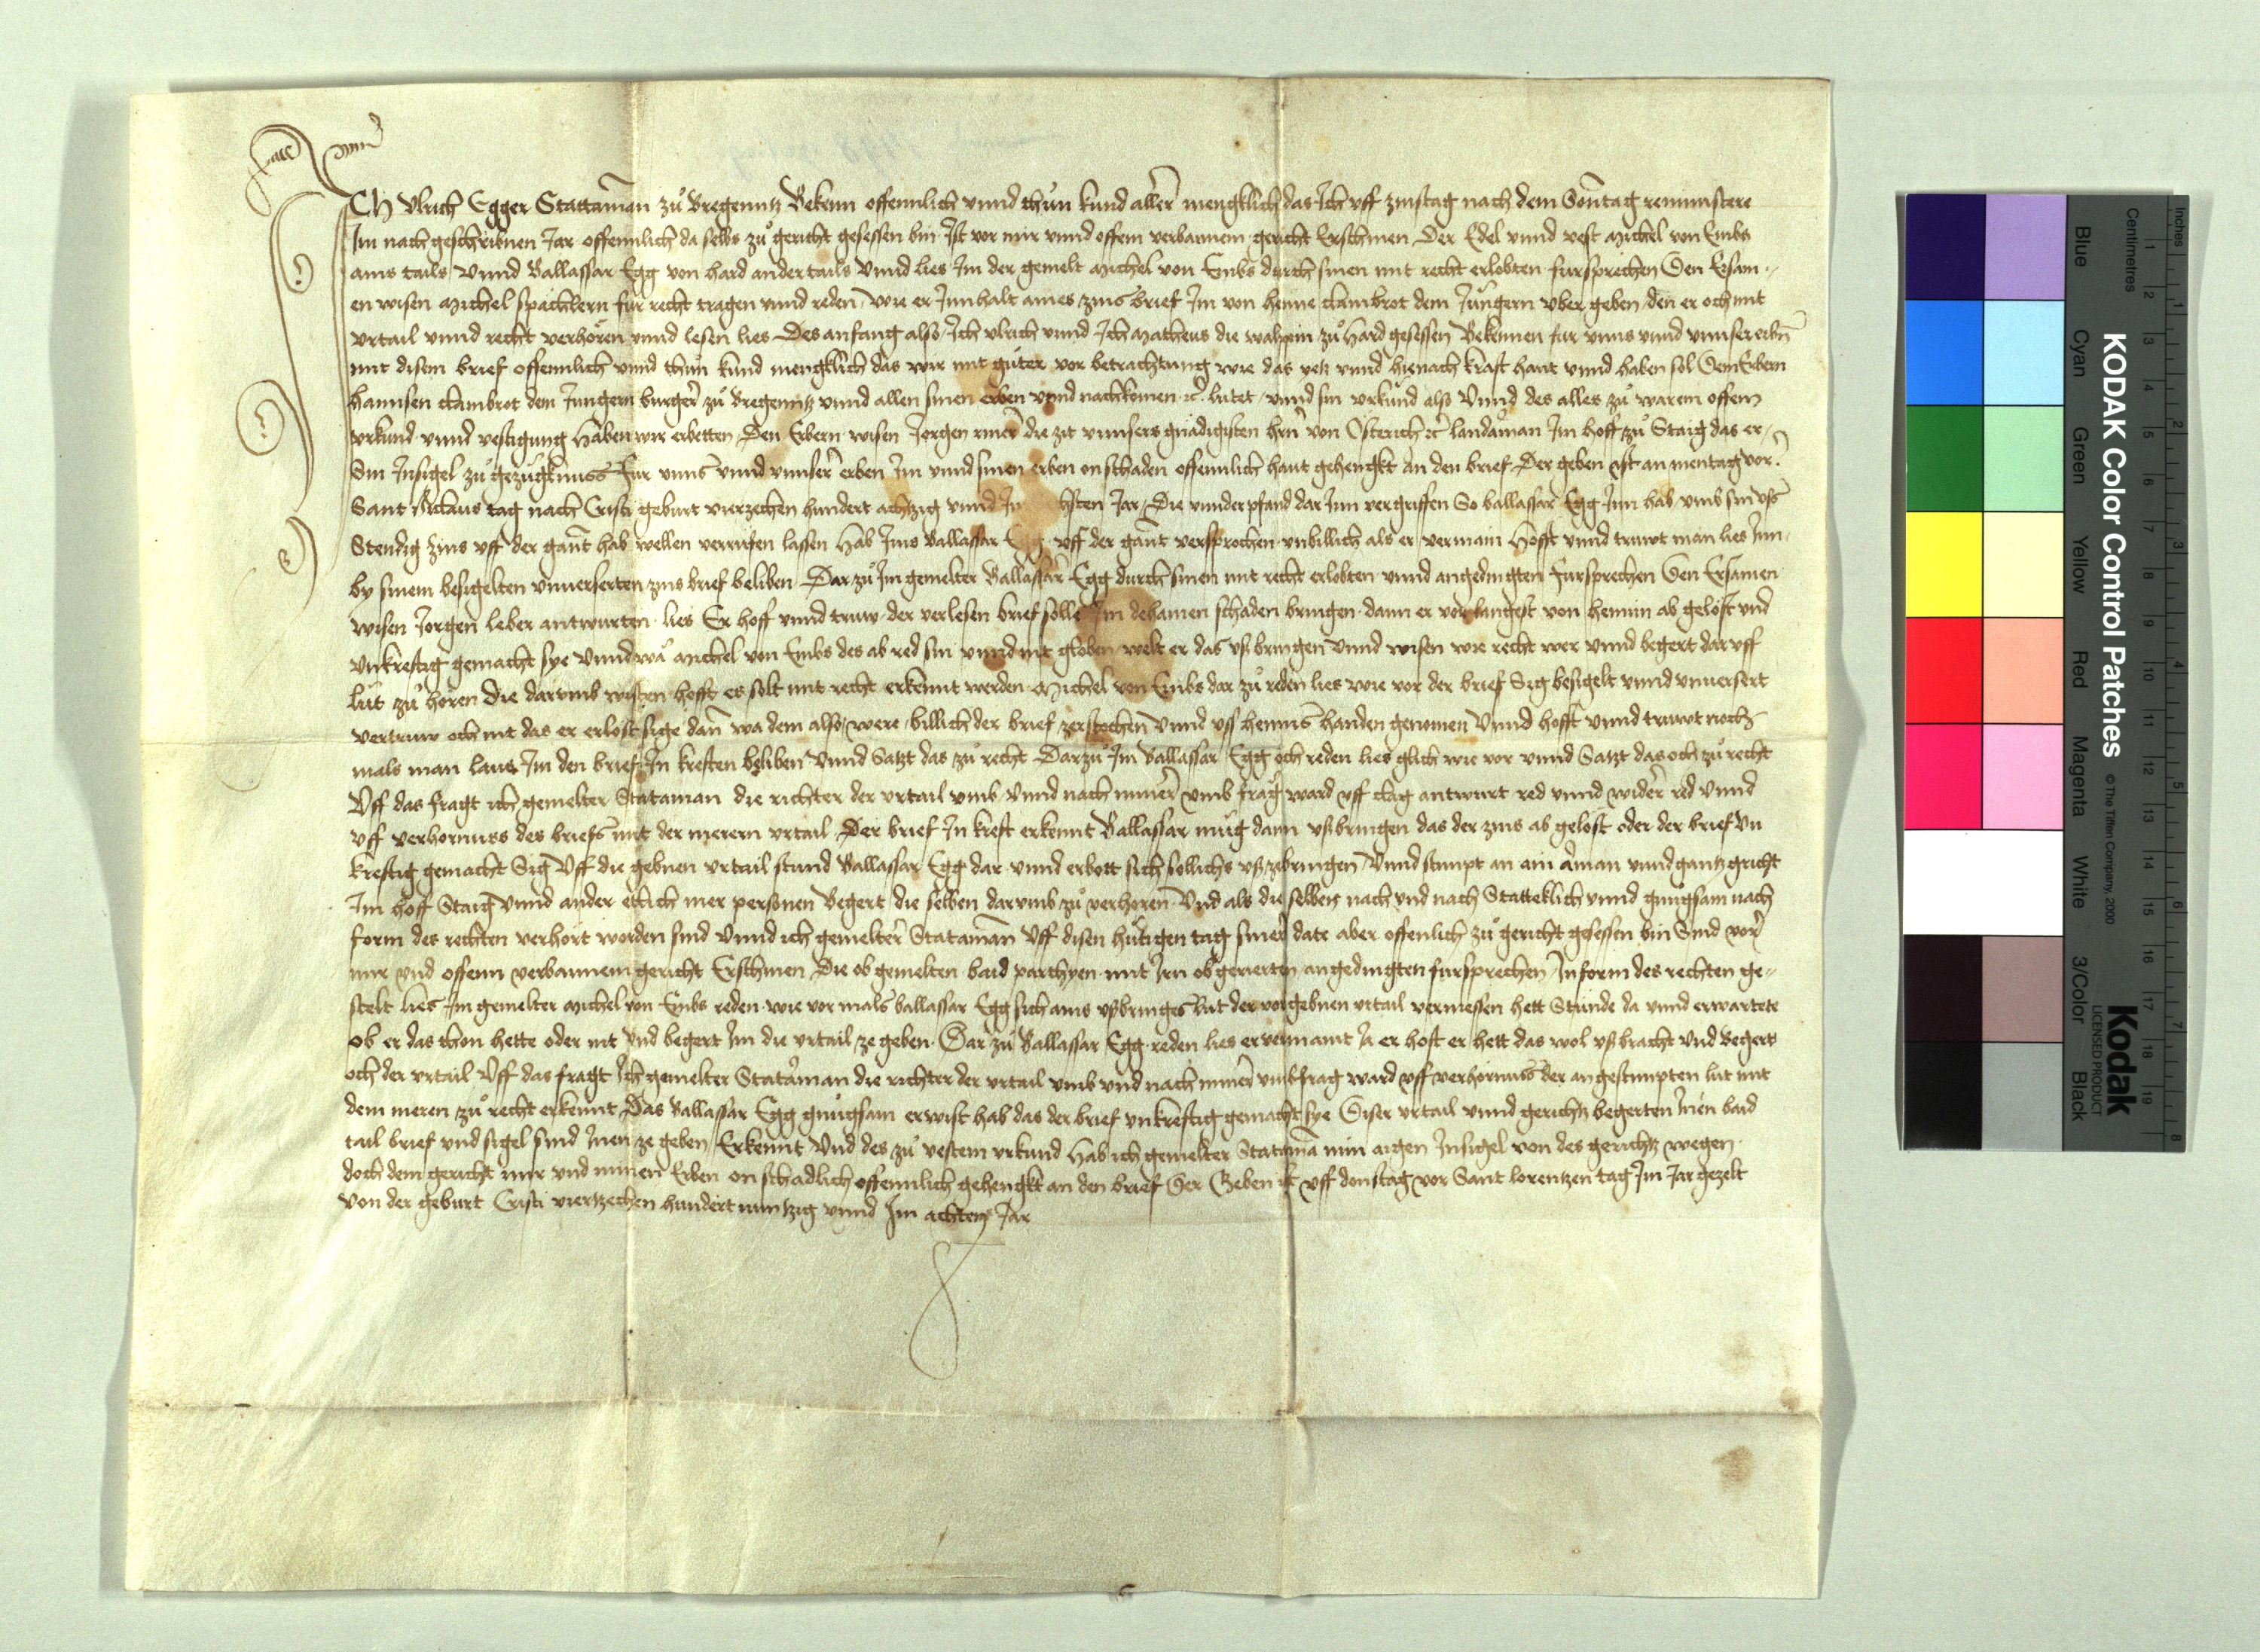 ICH Ulrich Egger Stattaman zů Bregenntz Bekenn offennlich unnd thůn kund allerr mengklich das Ich uff zinstag nach dem Sontag reminiscere
Im nach geschribnen Jar offennlich da selbs zů gericht gesessen bin Ist vor mir unnd offem verbannem gericht Erschinen Der Edel unnd vest Michel von Embs
ains tails Unnd Ballassar Egg von hard andertails Unnd lies Im der gemelt Michel von Embs durch sinen mit recht erlobten fursprechen Den Ersam
en wisen Michel spåchlern fur recht tragen unnd reden wie er Innhalt aines zins brief Im von henne clambrot dem Jungern uber geben den er och mit
urtail unnd recht verhőren unnd lesen lies Des anfang also Ich ulrich unnd Ich Matheus die walhen zů Hard gesessen Bekennen fur unns unnd unnser erbn
mit disem brief offennlich unnd thůn kund mengklich das wir mit gůter vor betrachtung wie das yetz unnd hienach kraft haut unnd haben sol Dem Erbern
hannsen clambrot dem Jungern burger zů Bregenntz unnd allen sinen erben unnd nachkomen ec. lutet unnd sin urkund also Unnd des alles zů warem offem
urkund unnd vestigung haben wir erbetten Den Erbern wisen Jorgen die zit unnsers gnådigisten hrn von Osterich ec landaman Im hoff zů Staig das er
Sin Insigel zů gezugknuss fur unns unnd unnser erben Im unnd sinen erben on schaden offennlich haut gehengkt an den brief Der geben ist an mentag vor
Sant tag nach Cristi geburt vierzechen hundert achtzig unnd Im Jar Die underpfand dar Inn vergriffen So ballassar Egg Inn hab umb sin uss
Stendig zins uff der gant hab wellen verrufen lassen Hab Ims Ballassar Egg uff der gant versprochen unbillich als er vermain Hofft unnd truwt man lies Inn
by sinem besigelten unverserten zins brief beliben Dar zů Im gemelter Ballassar Egg durch sinen mit recht erlobten unnd angedingten fursprechen Den Ersamen
wisen Jorgen leber antwurten lies Er hoff unnd truw der verlesen brief solle Im dehainen schaden bringen dann er vor langest von hennin ab gelost und
unkreftig gemacht sye Unnd wå Michel von Embs des ab red sin unnd nit globen welt er das usbringen unnd wisen wie recht wer unnd begert daruff
lut zů horen Die darumb wisten hofft es solt mit recht erkennt werden Michel von Embs dar zů reden lies wie vor der brief Sig besigelt unnd unversert
vertruw och nit das er erlost sige dan wa dem also were billich der brief zerstochen Unnd uss hennis handen genomen Unnd hofft unnd truwt noch
mals man laus Im den brief In kreften beliben Unnd Satzt das zů recht Darzů Im Ballassar Egg och reden lies glich wie vor unnd Satzt das och zů recht
Uff das fragt ich gemelter Stataman die richter der urtail umb Unnd nach miner umb frag ward uff clag antwurt red unnd wider red Unnd
uff verhornuss des briefs mit der merern urtail Der brief In kreft erkennt Ballassar mug dann usbringen das der zins ab gelost oder der brief un
kreftig gemacht Sig Uff die gebnen urtail stund Ballassar Egg dar unnd erbott sich sollichs uszebringen Unnd stimpt an ain aman unnd gantz gericht
Im hoff Staig Unnd ander etlich mer personen Begert die selben darumb zů verhoren Und als die selben nach und nach Statteklich unnd gnůgsam nach
form des rechten verhört worden sind Unnd ich gemelter Stataman Uff disen hutigen tag siner date aber offenlich zů gericht gesessen bin Sind vor
mir und offenn verbannem gericht Erschinen Die ob gemelten baid parthyen mit Irn obgerierten angedingten fursprechen In form des rechten ge
stelt lies Im gemelter Michel von Embs reden wie vor mals ballassar Egg sich ains usbringes lut der vorgebnen urtail vermessen hett Stunde da unnd erwartete
ob er das thon hette oder nit Und begert Im die urtail ze geben Dar zů Ballassar Egg reden lies er vermaint Ja er hoft er hett das wol usbracht Und Begert
och der urtail Uff das fragt Ich gemelter Stataman die richter der urtail umb und nach miner umbfrag ward uff verhornuss der angestimpten lut mit
dem meren zů recht erkennt Das Ballassar Egg gnůgsam erwist hab das der brief unkreftig gemacht sye Diser urtail unnd gerichtz begerten Inen baid
tail brief und sigel sind Inen ze geben Erkennt Und des zů vestem urkund Hab ich gemelter Stataman min aigen Insigel von des gerichtz wegen
doch dem gericht mir und minen Erben on schadlich offennlich gehengkt an den brief Der Geben ist uff donstag vor Sant lorentzen tag Im Jar gezelt
von der geburt Cristi viertzechen hundert nuntzig unnd Im achten Jar
KODAK Color Control Patches
© The Tiffen Company, 2000
Kodak
LICENSED PRODUCT
Inches
Centimetres
Blue Cyan Green Yellow Red Magenta White 3/Color Black
1 2 3 4 5 6 7 8 9 10 11 12 13 14 15 16 17 18 19
1 2 3 4 5 6 7 8